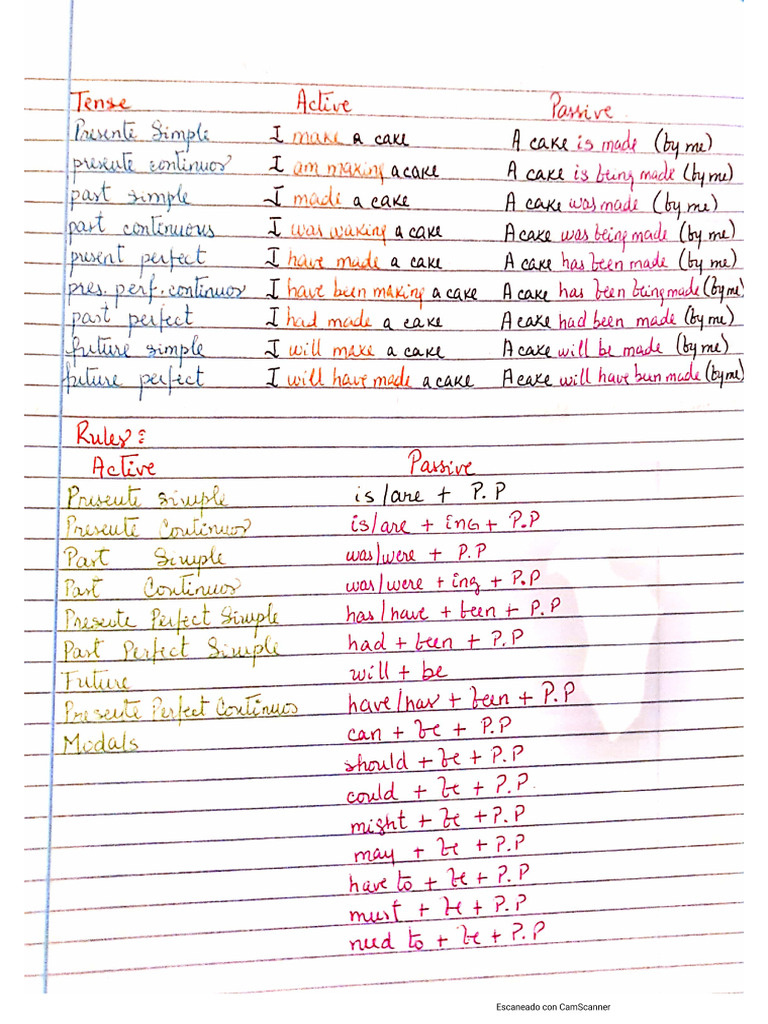 Tense Active Passive
Presente Simple I make a cake A cake is made (by me)
presente continuos I am making a cake A cake is being made (by me)
past simple I made a cake A cake was made (by me)
past continuous I was waking a cake A cake was being made (by me)
present perfect I have made a cake A cake has been made (by me)
pres. perf. continuos I have been making a cake A cake has been being made (by me)
past perfect I had made a cake A cake had been made (by me)
future simple I will make a cake A cake will be made (by me)
future perfect I will have made a cake A cake will have been made (by me)
Rules:
Active Passive
Presente simple is/are + P.P
Presente Continuos is/are + ing + P.P
Past Simple was/were + P.P
Past Continuos was/were + ing + P.P
Presente Perfect Simple has/have + been + P.P
Past Perfect Simple had + been + P.P
Future will + be
Presente Perfect Continuos have/has + been + P.P
Modals can + be + P.P
should + be + P.P
could + be + P.P.
might + be + P.P
may + be + P.P
have to + be + P.P
must + be + P.P
need to + be + P.P
Escaneado con CamScanner